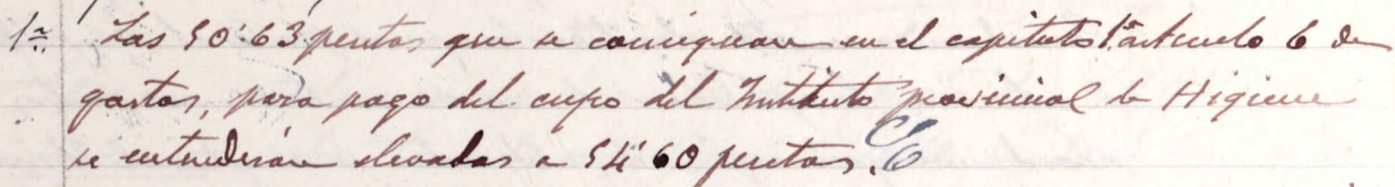 1ª Las 50'63 pesetas que se consignan en el capitulo 1º artículo 6 de
gastos, para pago del cupo del Instituto provincial de Higiene
se entenderán elevadas a 54'60 pesetas.